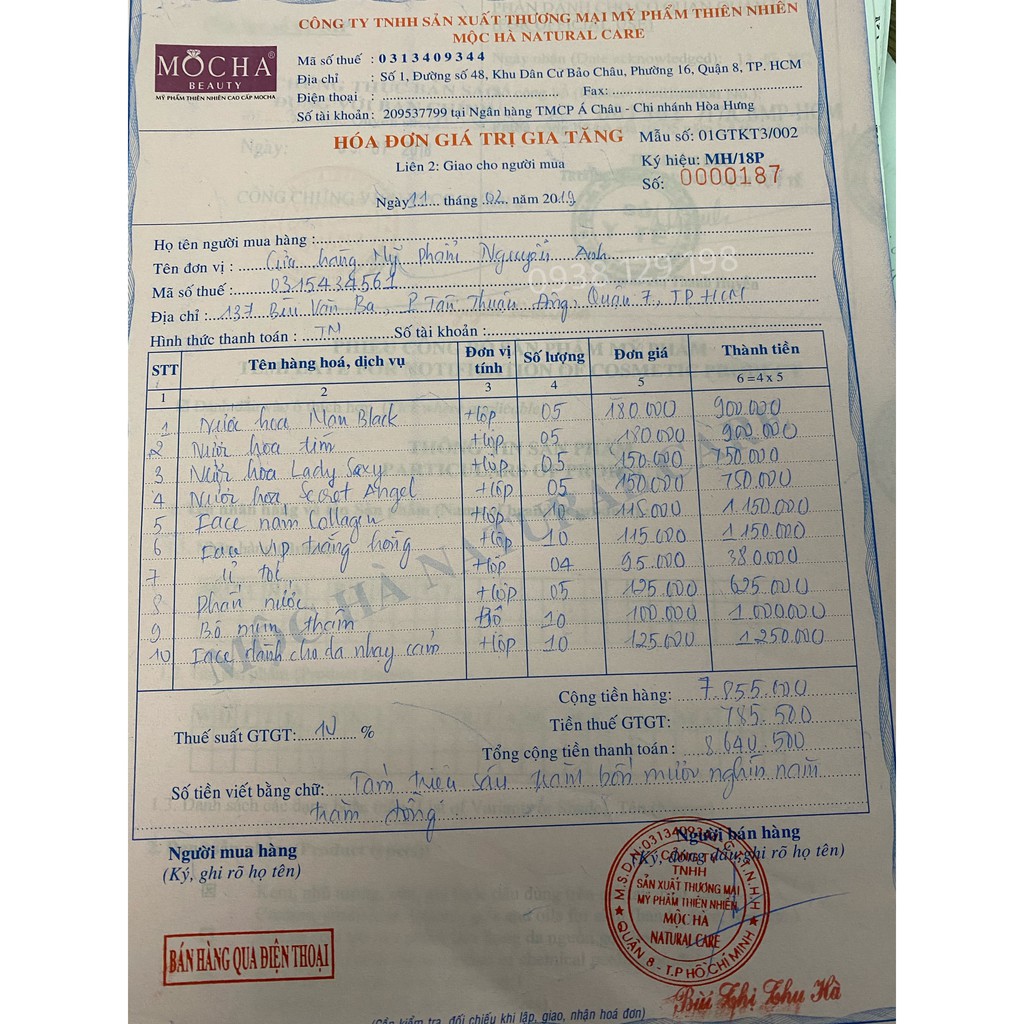 CÔNG TY TNHH SẢN XUẤT THƯƠNG MẠI MỸ PHẨM THIÊN NHIÊN
MỘC HÀ NATURAL CARE
MOCHA®
BEAUTY
MỸ PHẨM THIÊN NHIÊN CAO CẤP MOCHA
Mã số thuế : 0313409344
Địa chỉ : Số 1, Đường số 48, Khu Dân Cư Bảo Châu, Phường 16, Quận 8, TP. HCM
Điện thoại : Fax:
Số tài khoản: 209537799 tại Ngân hàng TMCP Á Châu - Chi nhánh Hòa Hưng
HÓA ĐƠN GIÁ TRỊ GIA TĂNG
Mẫu số: 01GTKT3/002
Liên 2: Giao cho người mua
Ký hiệu: MH/18P
Số: 0000187
Ngày 11 tháng 02 năm 2019
Họ tên người mua hàng :
Tên đơn vị : Cửa hàng Mỹ Phẩm Nguyễn Anh
0938 129 198
Mã số thuế : 0315434561
Địa chỉ : 137 Bùi Văn Ba, P. Tân Thuận Đông, Quận 7, TP HCM
Hình thức thanh toán : TM Số tài khoản :
STT Tên hàng hoá, dịch vụ Đơn vị tính Số lượng Đơn giá Thành tiền
1 2 3 4 5 6 = 4 x 5
1 Nước hoa Man Black Hộp 05 180.000 900.000
2 Nước hoa tím Hộp 05 180.000 900.000
3 Nước hoa Lady Sexy Hộp 05 150.000 750.000
4 Nước hoa Secret Angel Hộp 05 150.000 750.000
5 Face nám Collagen Hộp 10 115.000 1.150.000
6 Face Vip trắng hồng Hộp 10 115.000 1.150.000
7 Ủ tóc Hộp 04 95.000 380.000
8 Phấn nước Hộp 05 125.000 625.000
9 Bộ mụn thâm Bộ 10 100.000 1.000.000
10 Face dành cho da nhạy cảm Hộp 10 125.000 1.250.000
MỘC HÀ NATURAL CARE
Cộng tiền hàng: 7.855.000
Thuế suất GTGT: 10 % Tiền thuế GTGT: 785.500
Tổng cộng tiền thanh toán : 8.640.500
Số tiền viết bằng chữ: Tám triệu sáu trăm bốn mươi nghìn năm
trăm đồng
Người mua hàng
(Ký, ghi rõ họ tên)
Người bán hàng
(Ký, đóng dấu, ghi rõ họ tên)
M.S.D.N:0313409344-C.T.T.N.H.H
CÔNG TY
TNHH
SẢN XUẤT THƯƠNG MẠI
MỸ PHẨM THIÊN NHIÊN
MỘC HÀ
NATURAL CARE
QUẬN 8 - T.P HỒ CHÍ MINH
BÁN HÀNG QUA ĐIỆN THOẠI
Bùi Thị Thu Hà
(Cần kiểm tra, đối chiếu khi lập, giao, nhận hoá đơn)